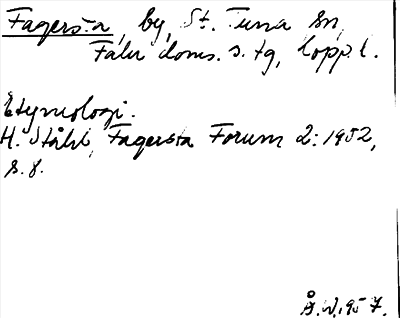 Fagersta, by, St. Tuna sn,
Falu doms. s. tg, Kopp. l.
Etymologi.
H. Ståhl, Fagersta Forum 2: 1952,
s. 8.
Å. W. 1957.